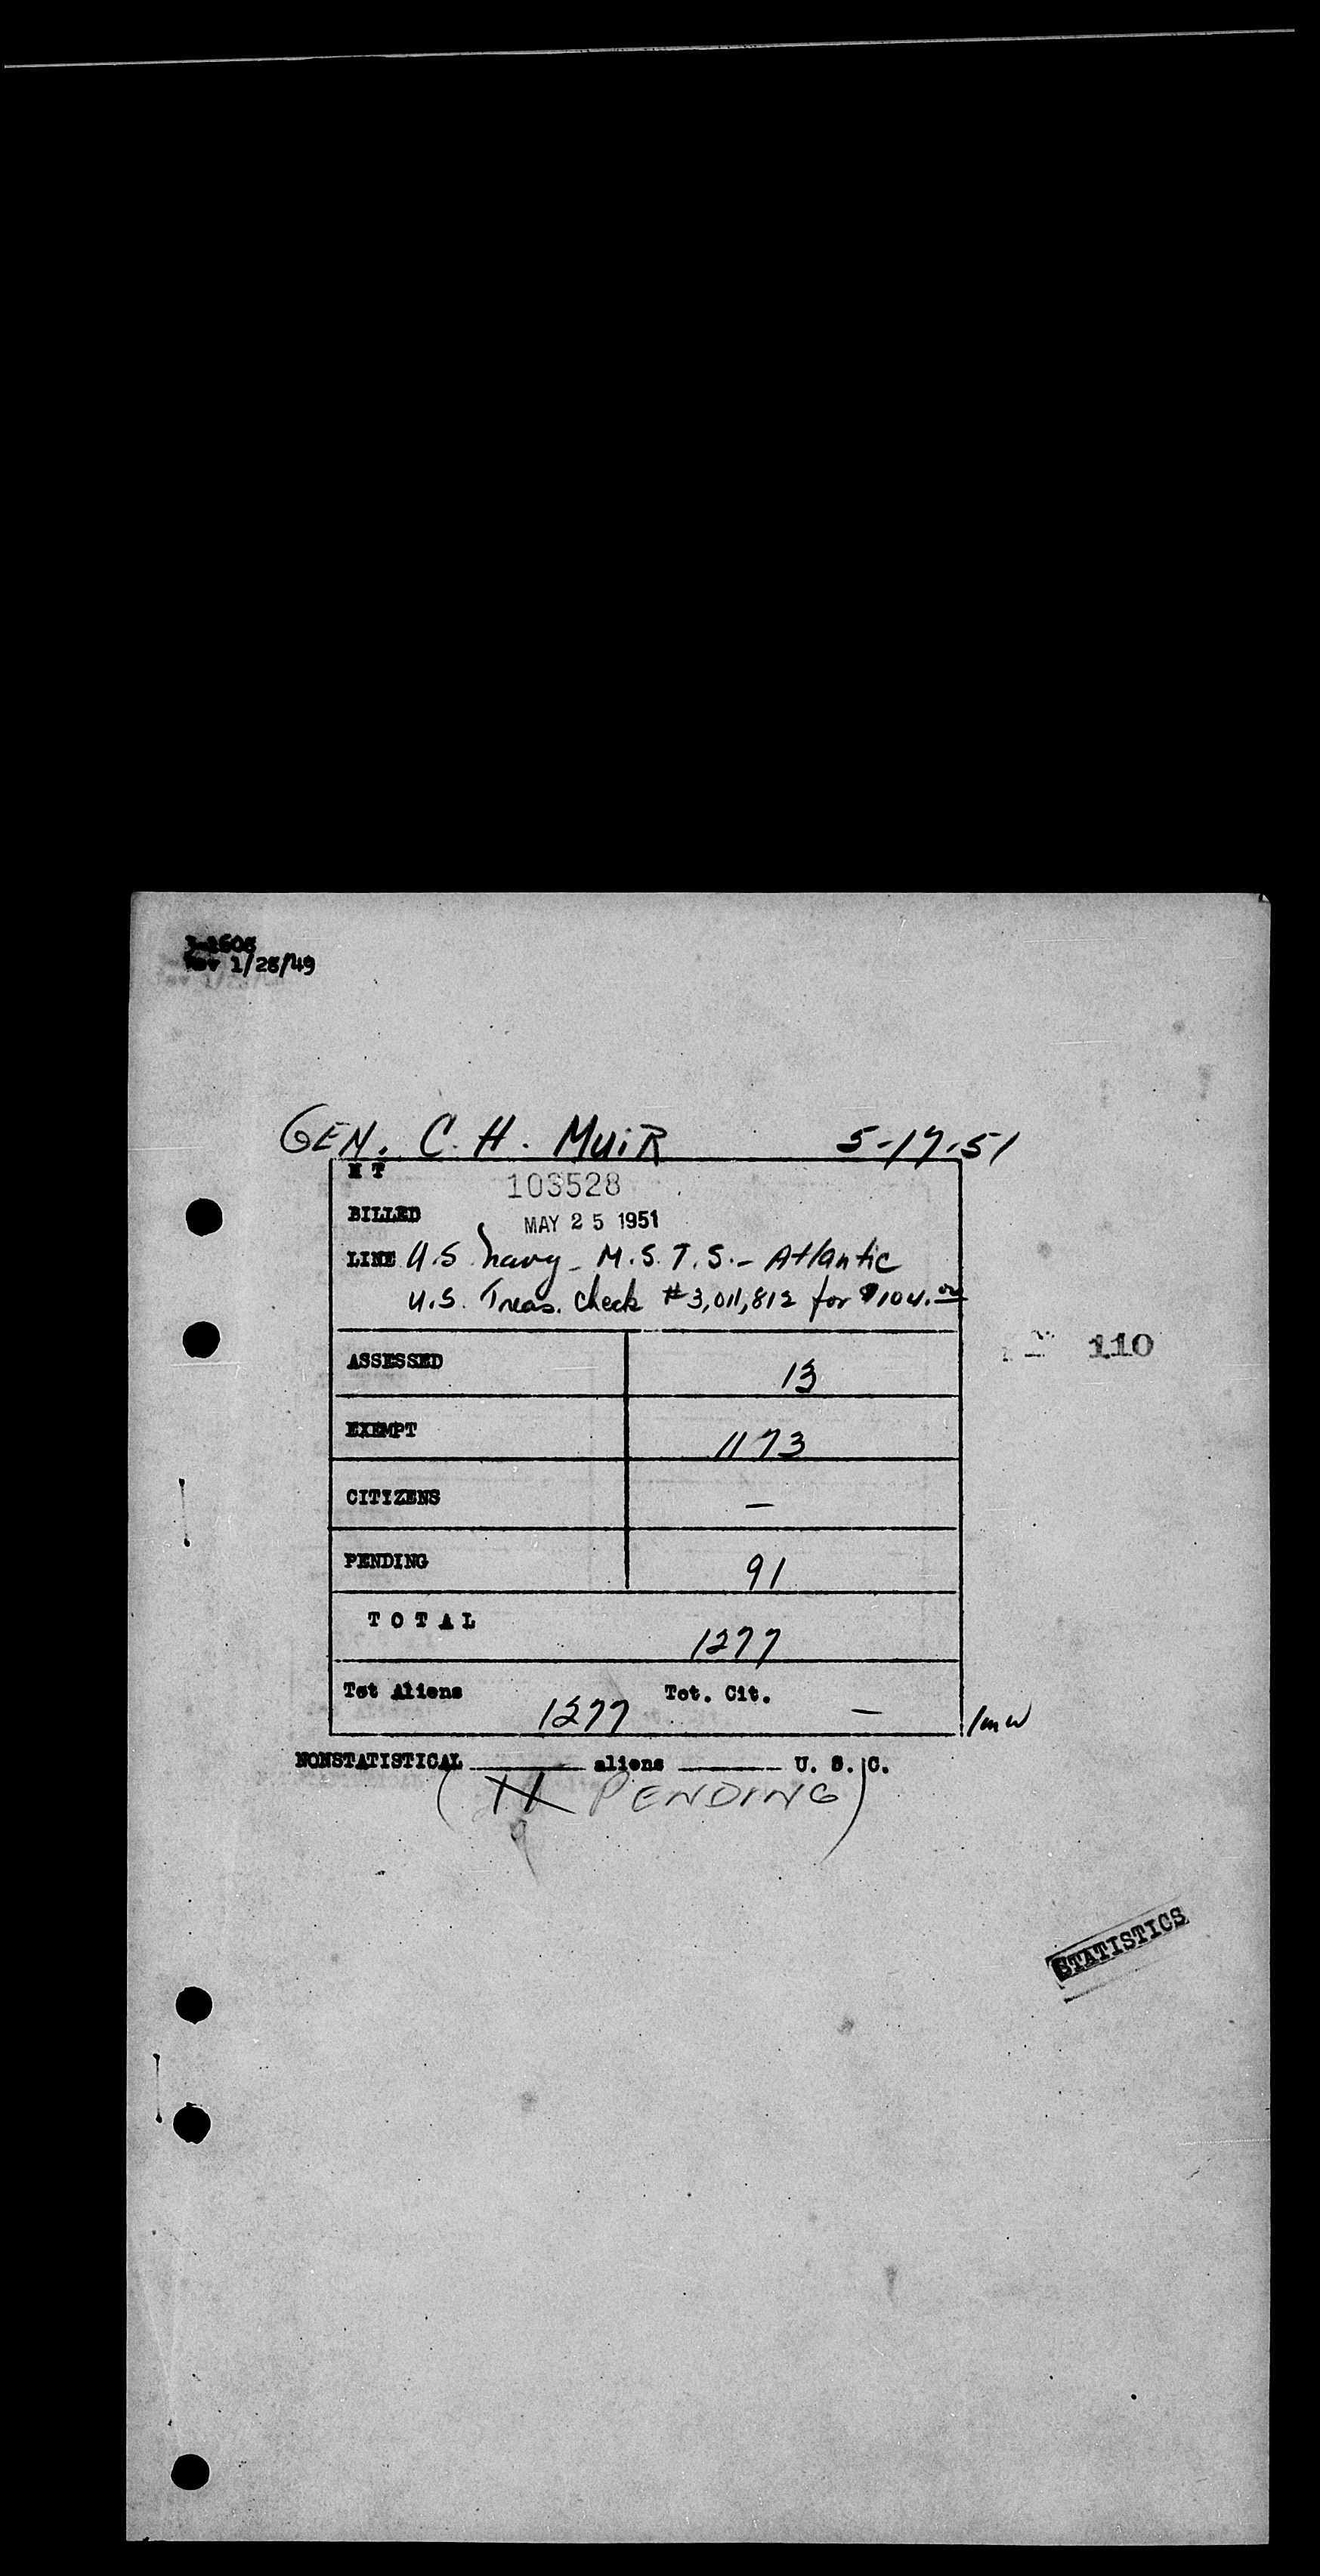 Rev 1/28/49
GEN. C. H. MUIR 5-17-51
H T 103528
BILLED MAY 25 1951
LINE U.S. Navy - M.S.T.S. - Atlantic
U.S. Treas. Check #3,011,812 for $104.00
110
ASSESSED 13
EXEMPT 1173
CITIZENS —
PENDING 91
T O T A L 1277
Tot Aliens 1277 Tot. Cit. —
NONSTATISTICAL ______ aliens ______ U. S. C.
( 11 PENDING)
9
STATISTICS